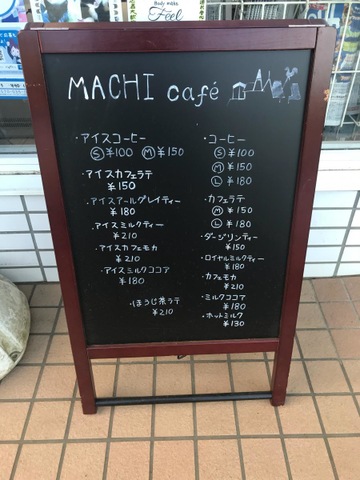 Body Works
Feel
MACHI café
・アイスコーヒー
Ⓢ ¥100 Ⓜ ¥150
・アイスカフェラテ
¥150
・アイスアールグレイティー
¥180
・アイスミルクティー
¥210
・アイスカフェモカ
¥210
・アイスミルクココア
¥180
・ほうじ茶ラテ
¥210
・コーヒー
Ⓢ ¥100
Ⓜ ¥150
Ⓛ ¥180
・カフェラテ
Ⓜ ¥150
Ⓛ ¥180
・ダージリンティー
¥150
・ロイヤルミルクティー
¥180
・カフェモカ
¥210
・ミルクココア
¥180
・ホットミルク
¥130